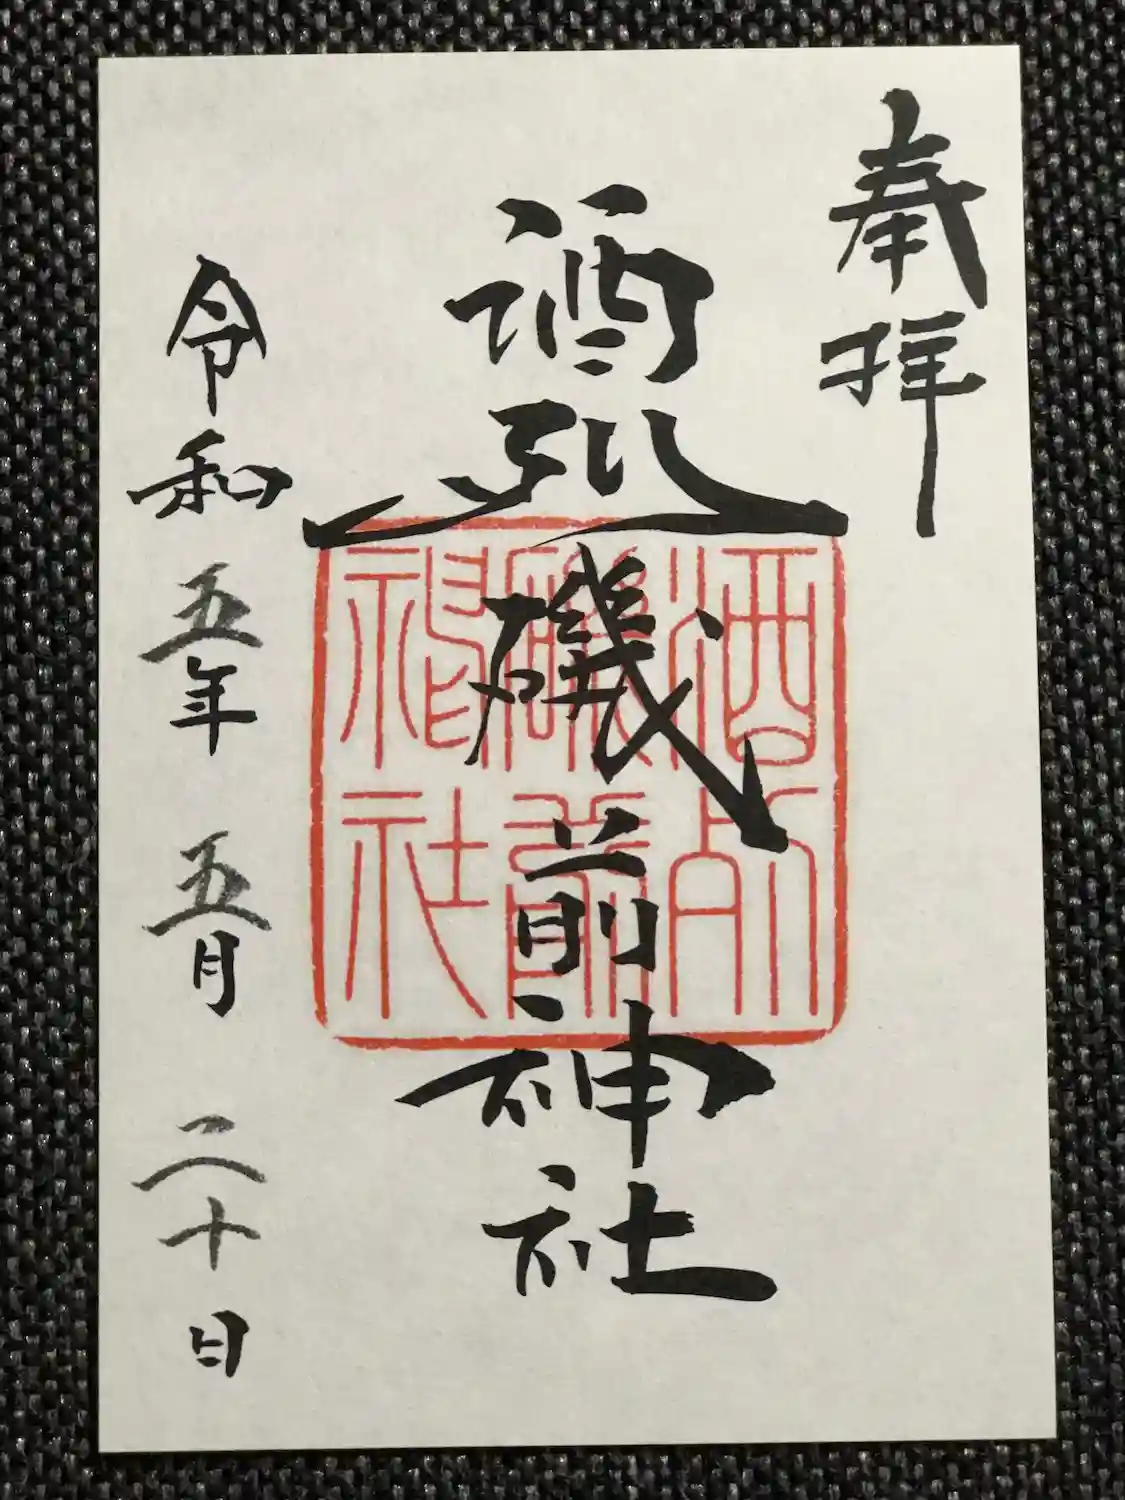 奉拝
酒列磯前神社
酒列
磯前
神社
令和五年五月二十日